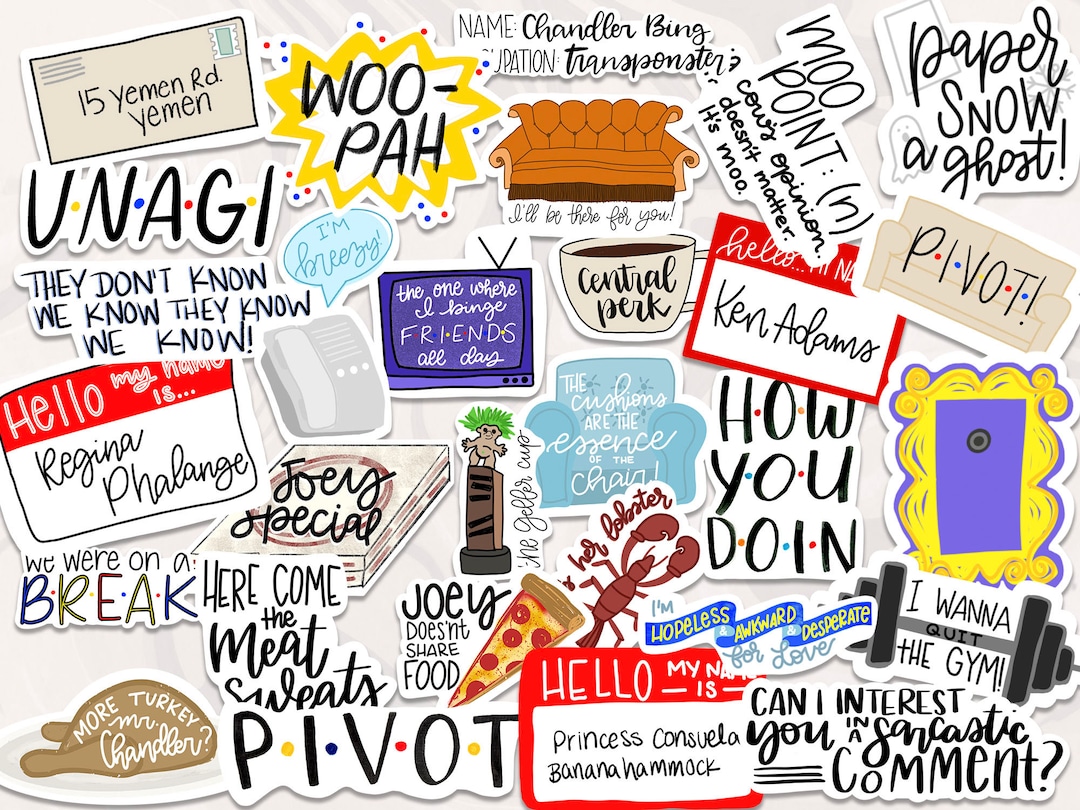 15 Yemen Rd.
Yemen
WOO-
PAH
NAME: Chandler Bing
UPATION: Transponster?
MOO
POINT: (n)
cow's opinion
doesn't matter.
It's moo.
paper
SNOW
a ghost!
U·N·A·G·I
I'll be there for you!
I'M
breezy.
THEY DON'T KNOW
WE KNOW THEY KNOW
WE KNOW!
the one where
I binge
F·R·I·E·N·D·S
all day
central
perk
hello... MY NA
Ken Adams
P·I·V·O·T!
Hello my name
is...
Regina
Phalange
Joey
Special
the Geller cup
THE
cushions
ARE THE
essence
OF THE
chair!
HOW
YOU
DOIN
her lobster
WE WERE ON A
B·R·E·A·K
HERE COME
the
Meat
Sweats
JOEY
DOES'NT
SHARE
FOOD
I'M
HOPELESS & AWKWARD & DESPERATE
for Love
I WANNA
QUIT
THE GYM!
MORE TURKEY
mr.
Chandler?
P·I·V·O·T
HELLO MY NAM
IS
Princess Consuela
Bananahammock
CAN I INTEREST
you IN A sarcastic
COMMENT?